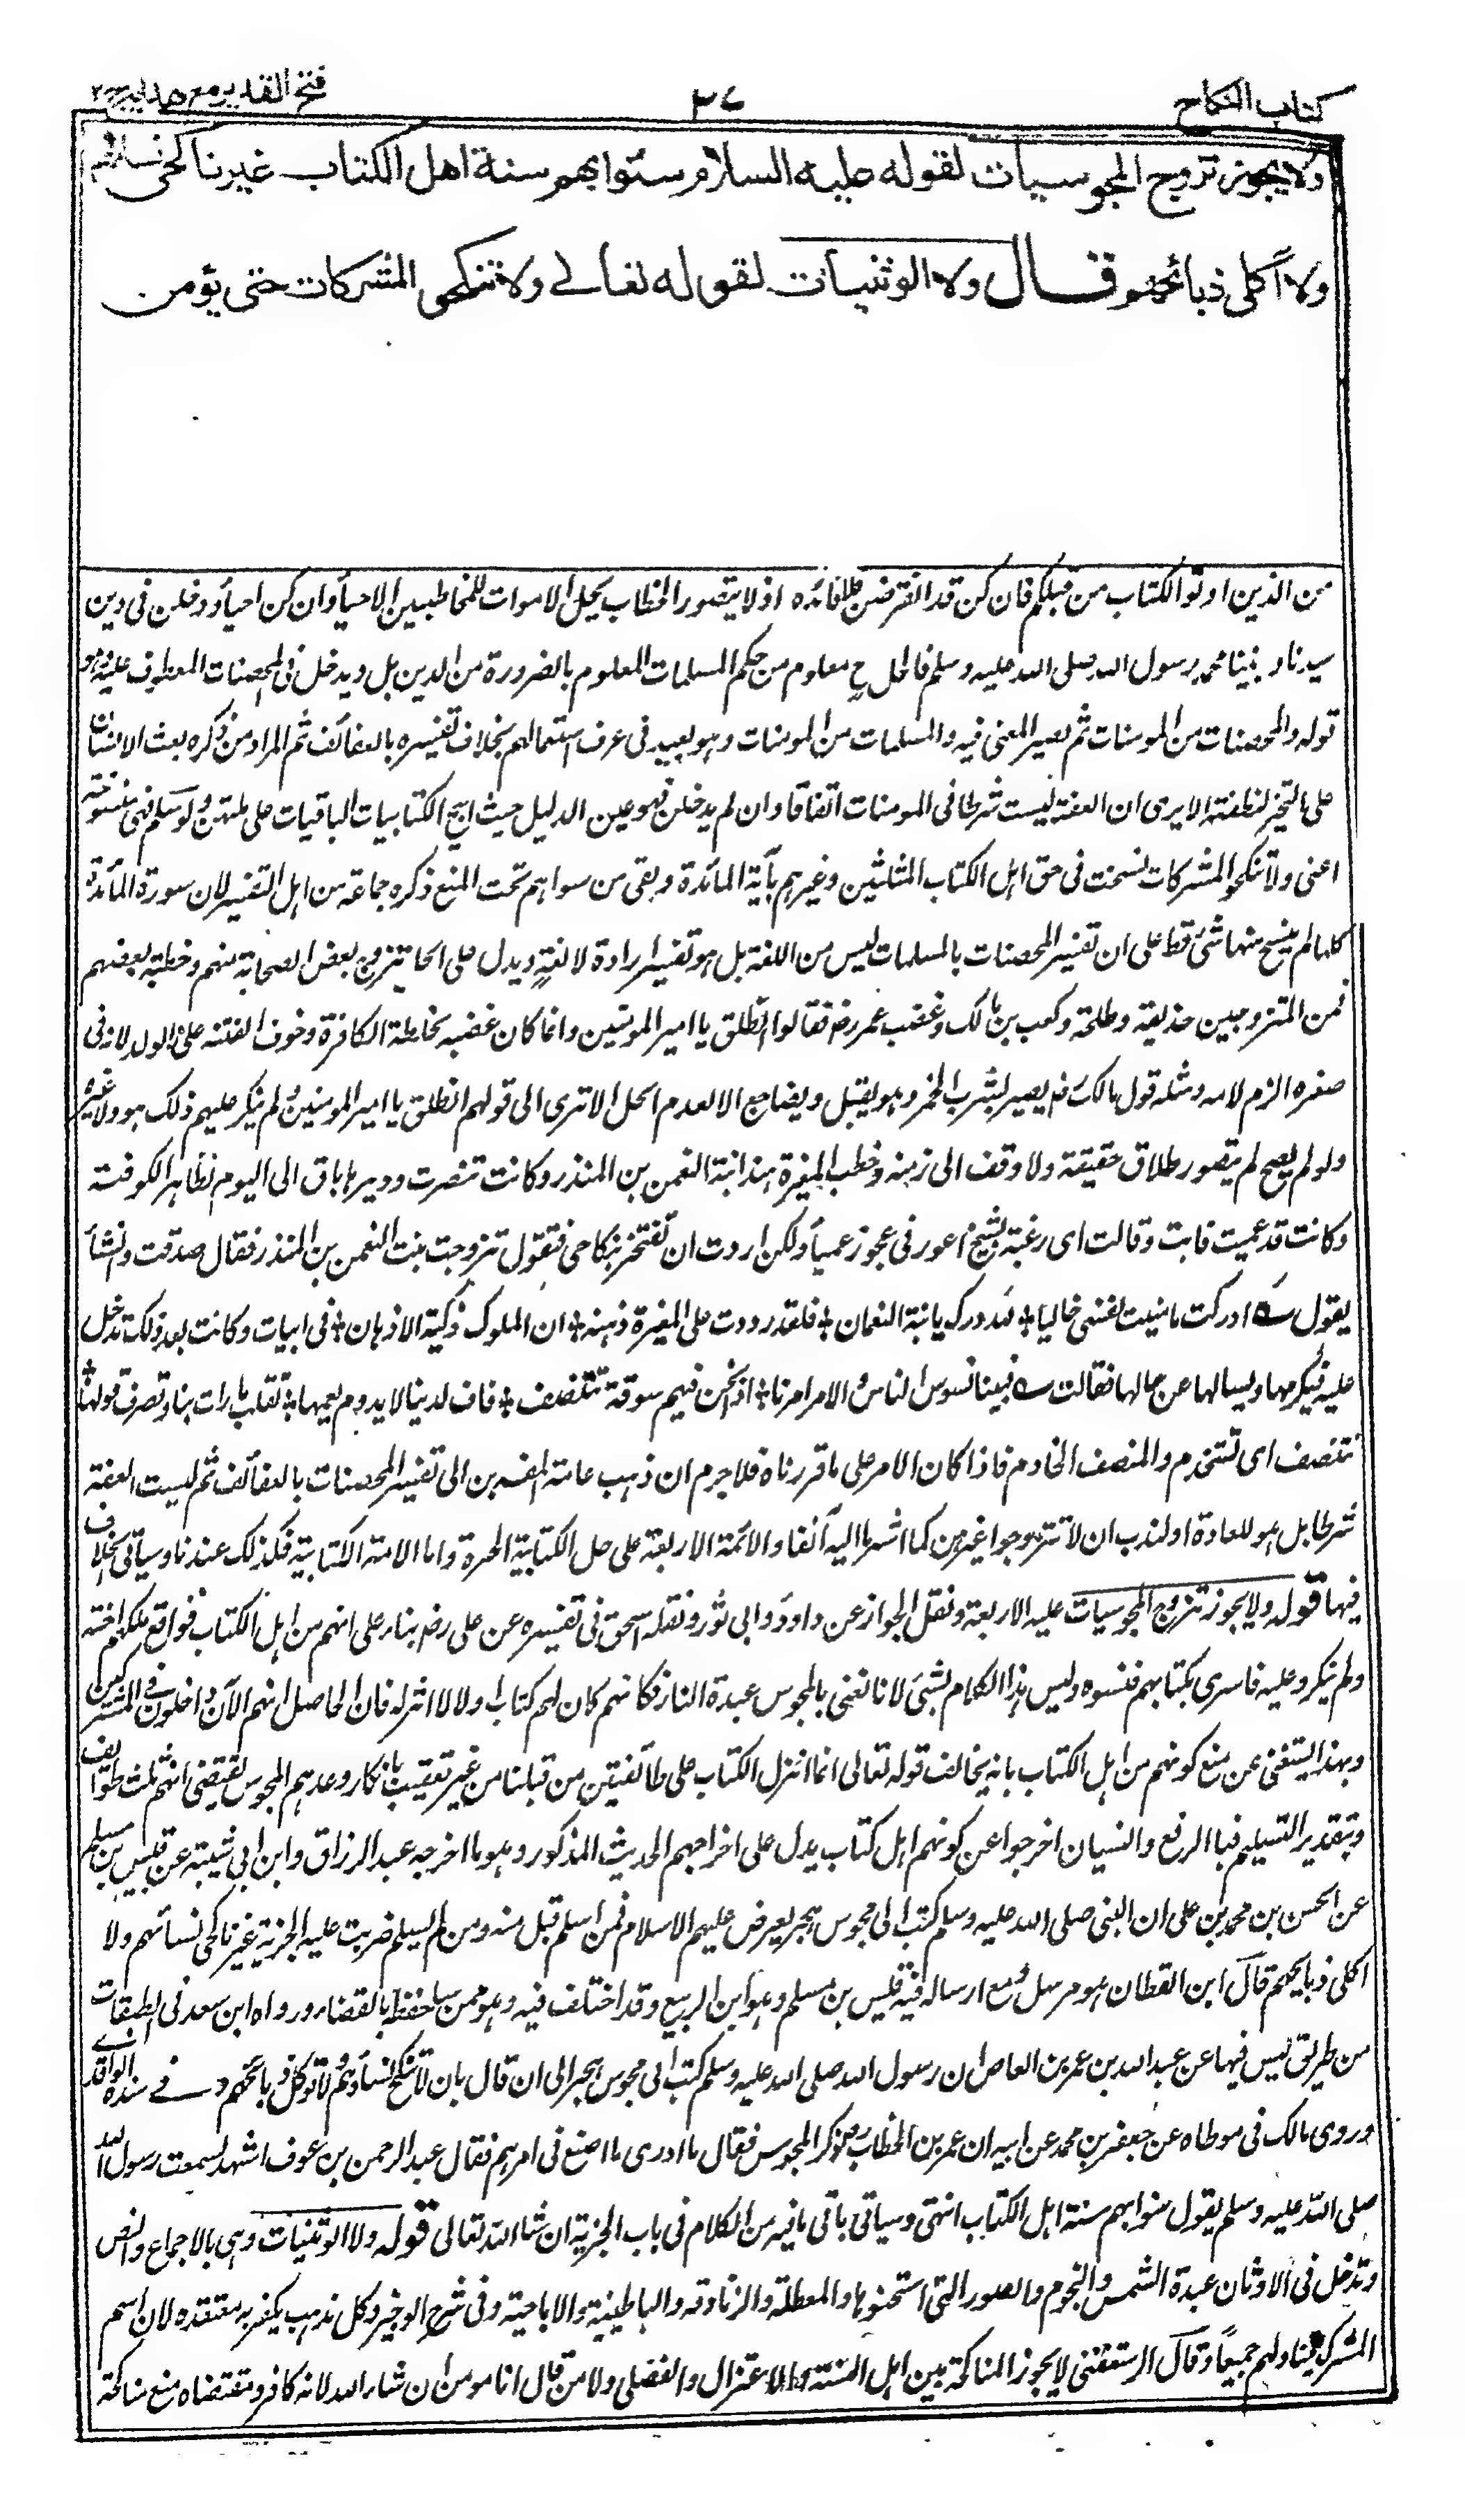 كتاب النكاح
٣٧
فتح القدير مع هدايه ج٢
ولا يجوز تزوج المجوسيات لقوله عليه السلام سنوا بهم سنة اهل الكتاب غير ناكحى نسائهم
ولا آكلى ذبائحهم قال ولا الوثنيات لقوله تعالى ولا تنكحوا المشركات حتى يؤمن
من الذين اوتوا الكتاب من قبلكم فان كن قد انقرضن فلا فائده اذ لا يتصور الخطاب بحل الاموات للمخاطبين الاحياء وان كن احياء ودخلن فى دين
سيدنا ونبينا محمد رسول الله صلى الله عليه وسلم فالحل ح معلوم من حكم المسلمات المعلوم بالضرورة من الدين بل ويدخل فى المحصنات المعطوف عليه وهو
قوله والمحصنات من المومنات ثم يصير المعنى فيه والمسلمات من المومنات وهو بعيد فى عرف استعمالهم بخلاف تفسيره بالعفائف ثم المراد من ذكره بعث الانسان
على التخير لنطفته الا يرى ان العفة ليست شرطا فى المومنات اتفاقا وان لم يدخلن فهو عين الدليل حيث ابيح الكتابيات الباقيات على ملتهن ولو سلم فهى منسوخة
اعنى ولا تنكحوا المشركات نسخت فى حق اهل الكتاب المثلثين وغيرهم بآية المائدة وبقى من سواهم تحت المنع ذكره جماعة من اهل التفسير لان سورة المائدة
كلها لم ينسخ منها شئ قط على ان تفسير المحصنات بالمسلمات ليس من اللغة بل هو تفسير ارادة لا لغة ويدل على الحل تزوج بعض الصحابة منهم وخطبة بعضهم
فمن المتزوجين حذيفة وطلحة وكعب بن مالك وغضب عمر رض فقالوا انطلق يا امير المومنين وانما كان غضبه لخلطة الكافرة وخوف الفتنه على الولد لانه فى
صغره الزم لامه ومثله قول مالك رض يصير يشرب الخمر وهو يقبل ويضاجع لا لعدم الحل الا ترى الى قولهم انطلق يا امير المومنين ولم ينكر عليهم ذلك هو ولا غيره
ولو لم يصح لم يتصور طلاق حقيقة ولا وقف الى زمنه وخطب المغيرة هندا ابنة النعمن بن المنذر وكانت تنصرت وديرها باق الى اليوم بظاهر الكوفة
وكانت قد عميت فابت وقالت اى رغبة بشيخ اعور فى عجوز عمياء ولكن اردت ان تفتخر بنكاحى فتقول تزوجت بنت النعمن بن المنذر فقال صدقت وانشأ
يقول ادركت ما منيت نفسى خاليا ۞ لله درك يا ابنة النعمان ۞ فلقد رددت على المغيرة ذهنه ۞ ان الملوك ذكية الاذهان ۞ فى ابيات وكانت بعد ذلك تدخل
عليه فيكرمها ويسالها عن حالها فقالت فبينا نسوس الناس والامر امرنا ۞ اذا نحن فيهم سوقة نتنصف ۞ فاف لدنيا لا يدوم نعيمها ۞ تقلب تارات بنا وتصرف قولها
نتنصف اى نستخدم والمنصف الخادم فاذا كان الامر على ما قررناه فلا جرم ان ذهب عامة المفسرين الى تفسير المحصنات بالعفائف ثم ليست العفة
شرطا بل هو للعادة او لندب ان لا تتزوجوا غيرهن كما اشرنا اليه آنفا والائمة الاربعة على حل الكتابية الحرة واما الامة الكتابية فكذلك عندنا وسياتى الخلاف
فيها قوله ولا يجوز تزوج المجوسيات عليه الاربعة ونقل الجواز عن داود وابى ثور ونقله اسحق فى تفسيره عن على رض بناء على انهم من اهل الكتاب فواقع ملكهم اخته
ولم ينكروا عليه فاسرى بكتابهم فنسوه وليس هذا الكلام بشئ لانا نعنى بالمجوس عبدة النار فكانهم كان لهم كتاب اولا لا اثر له فان الحاصل انهم الآن داخلون فى المشركين
وبهذا يستغنى عن منع كونهم من اهل الكتاب بانه يخالف قوله تعالى انما انزل الكتاب على طائفتين من قبلنا من غير تعقيب بانكار وعدهم المجوس يقتضى انهم ثلث طوائف
وبتقدير التسليم فبالرفع والنسيان اخرجوا عن كونهم اهل كتاب يدل على اخراجهم الحديث المذكور وهو ما اخرجه عبد الرزاق وابن ابى شيبة عن قيس بن مسلم
عن الحسن بن محمد بن على ان النبى صلى الله عليه وسلم كتب الى مجوس هجر يعرض عليهم الاسلام فمن اسلم قبل منه ومن لم يسلم ضربت عليه الجزية غير ناكحى نسائهم ولا
اكلى ذبايحهم قال ابن القطان هو مرسل ومع ارساله فيه قيس بن مسلم وهو ابن الربيع وقد اختلف فيه وهو ممن ساء حفظه بالقضاء ورواه ابن سعد فى الطبقات
من طريق ليس فيها عن عبد الله بن عمر بن العاص ان رسول الله صلى الله عليه وسلم كتب الى مجوس هجر الى ان قال بان لا تنكح نساؤهم ولا توكل ذبائحهم وفے سنده الواقدے
وروى مالك فى موطاه عن جعفر بن محمد عن ابيه ان عمر بن الخطاب رض ذكر المجوس فقال ما ادرى ما اصنع فى امرهم فقال عبد الرحمن بن عوف اشهد لسمعت رسول الله
صلى الله عليه وسلم يقول سنوا بهم سنة اهل الكتاب انتهى وسياتى باقى ما فيه من الكلام فى باب الجزية ان شاء الله تعالى قوله ولا الوثنيات وهى بالاجماع والنص
وتدخل فى الاوثان عبدة الشمس والنجوم والصور التى استحسنوها والمعطلة والزنادقه والباطينية والاباحية وفى شرح الوجيز وكل مذهب يكفر به معتقده لان اسم
المشرك يتناولهم جميعاً وقال الرستغفنى لا يجوز المناكحة بين اهل السنة والاعتزال والفضلى ولا من قال انا مومن ان شاء الله لانه كافر ومقتضاه منع مناكحة